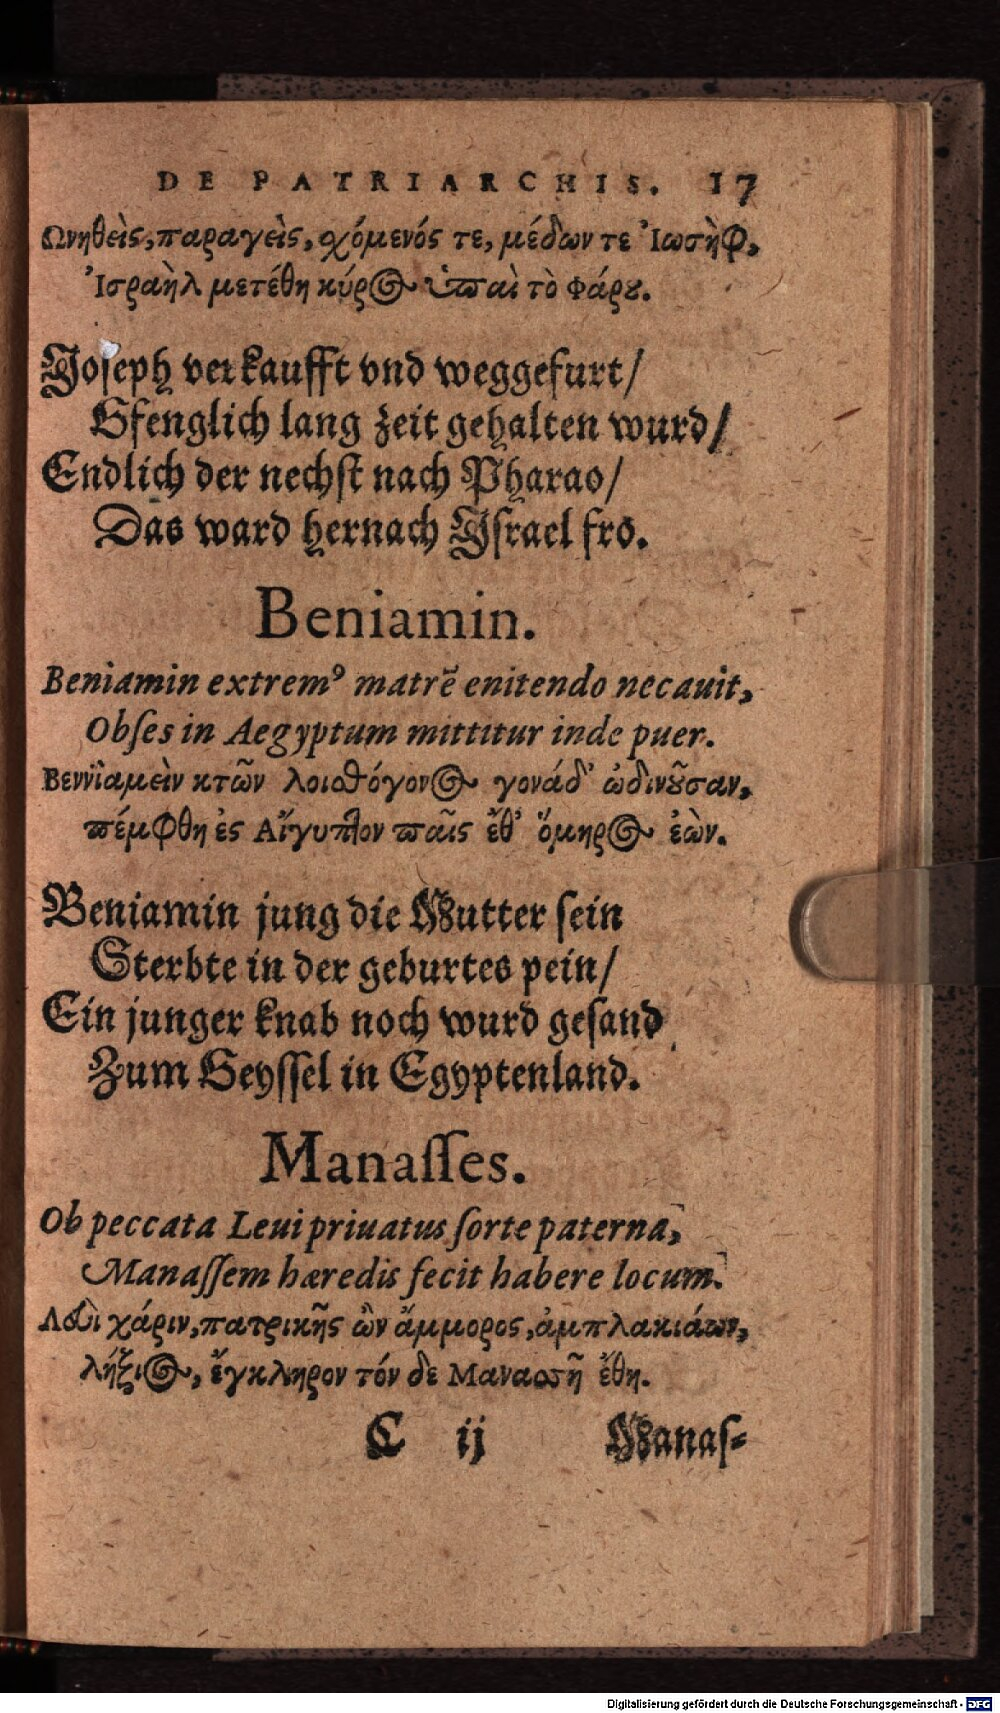 DE PATRIARCHIS. 17
Ωνηθεὶς, παραγεὶς, οχόμενός τε, μέδων τε Ἰωσὴφ,
Ἰσραὴλ μετέθη κύρος ὑπαὶ τὸ Φάρου.
Joseph verkaufft vnd weggefurt/
Gfenglich lang zeit gehalten wurd/
Endlich der nechst nach Pharao/
Das ward hernach Jsrael fro.
Beniamin.
Beniamin extremꝰ matrẽ enitendo necauit,
Obſes in Aegyptum mittitur inde puer.
Βεννϊαμεὶν κτῶν λοισθόγονος γονάδ' ὠδινοῦσαν,
πέμφθη ἐς Αἴγυπτον παῖς ἔθ' ὅμηρος ἐὼν.
Beniamin jung die Mutter sein
Sterbte in der geburtes pein/
Ein junger knab noch wurd gesand
Zum Geyssel in Egyptenland.
Manaſſes.
Ob peccata Leui priuatus ſorte paterna,
Manaſſem hæredis fecit habere locum.
Λευὶ χάριν, πατρικῆς ὢν ἄμμορος, ἀμπλακιάων,
λήξιος, ἔγκληρον τόν δε Μανασσῆ ἔθη.
C ij Manas⸗
Digitalisierung gefördert durch die Deutsche Forschungsgemeinschaft - DFG